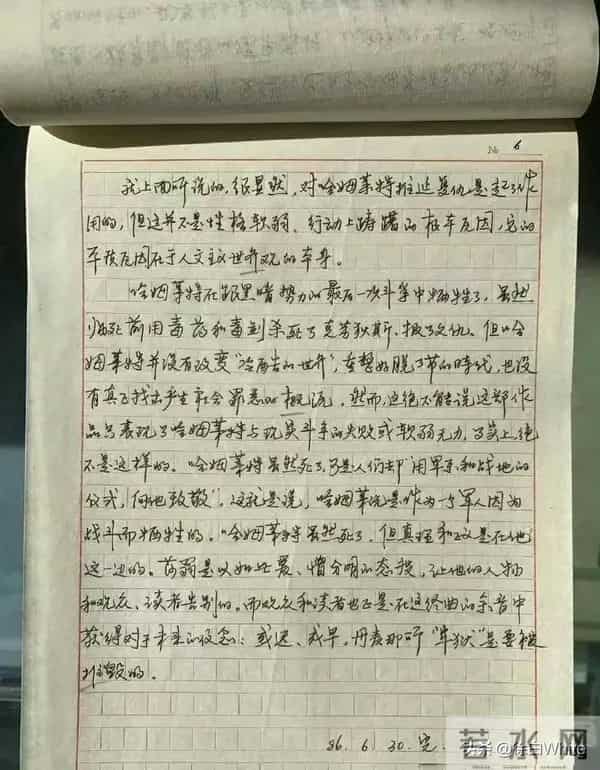 № 6
我上面所说的，很显然，对哈姆莱特推延复仇是起了作
用的，但这并不是性格软弱、行动上踌躇的根本原因，它的
本质原因在于人文主义世界观的本身。
哈姆莱特在跟黑暗势力的最后一次斗争中牺牲了，虽然
临死前用毒药和毒剑杀死了克劳狄斯，报了父仇。但哈
姆莱特并没有改变“冷酷的世界”，重整好脱了节的时代，也没
有真正找出产生社会罪恶的根源。然而，这绝不能说这部作
品只表现了哈姆莱特与现实斗争的失败或软弱无力，事实上绝
不是这样的。哈姆莱特虽然死了，可是人们却“用军乐和战地的
仪式，向他致敬”，这就是说，哈姆莱特是作为一个军人因为
战斗而牺牲的。哈姆莱特虽然死了，但真理和正义是在他
这一边的。莎翁是以如此爱、憎分明的态度，让他的人物
和观众、读者告别的。而观众和读者也正是在这终曲的余音中
获得对于未来的信念：或迟、或早，丹麦那所“牢狱”是要被
摧毁的。
86. 6. 30. 完.
头条 @徐白White
若水网